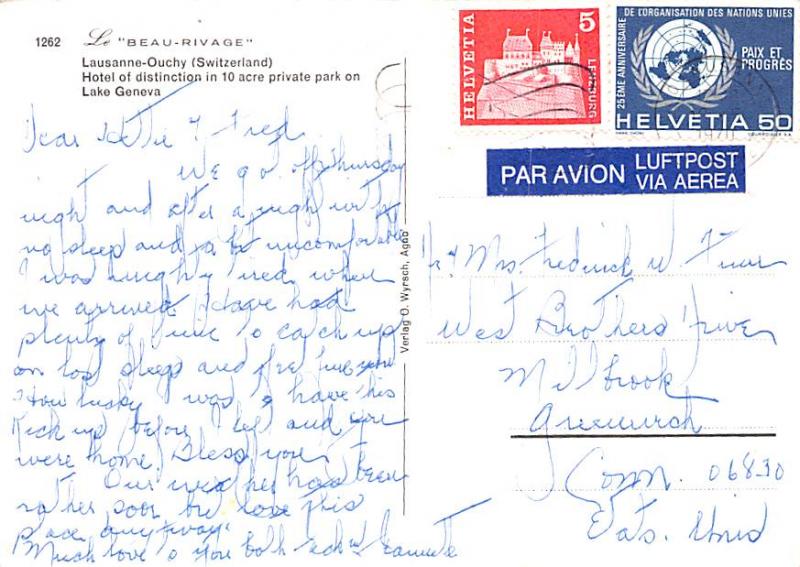 1262 Le "BEAU-RIVAGE"
Lausanne-Ouchy (Switzerland)
Hotel of distinction in 10 acre private park on
Lake Geneva
HELVETIA
5
LENZBURG
25ÈME ANNIVERSAIRE
DE L'ORGANISATION DES NATIONS UNIES
PAIX ET
PROGRÈS
HELVETIA 50
PAR AVION LUFTPOST
VIA AEREA
Verlag O. Wyrsch, Agno
Dear & Fred
We got off Thursday
night and after a night with
no sleep and a bit uncomfortable
I was mighty tired when
we arrived. Have had
plenty of time to catch up
on lost sleep and
How lucky I was to have this
Kick up before I left and you
were home. Bless you
Our weather has been
rather poor but love this
place anyway.
Much love to you both
Mrs. Frederick W
West Brothers Drive
Millbrook
Greenwich
Conn. 06830
Etats. Unis